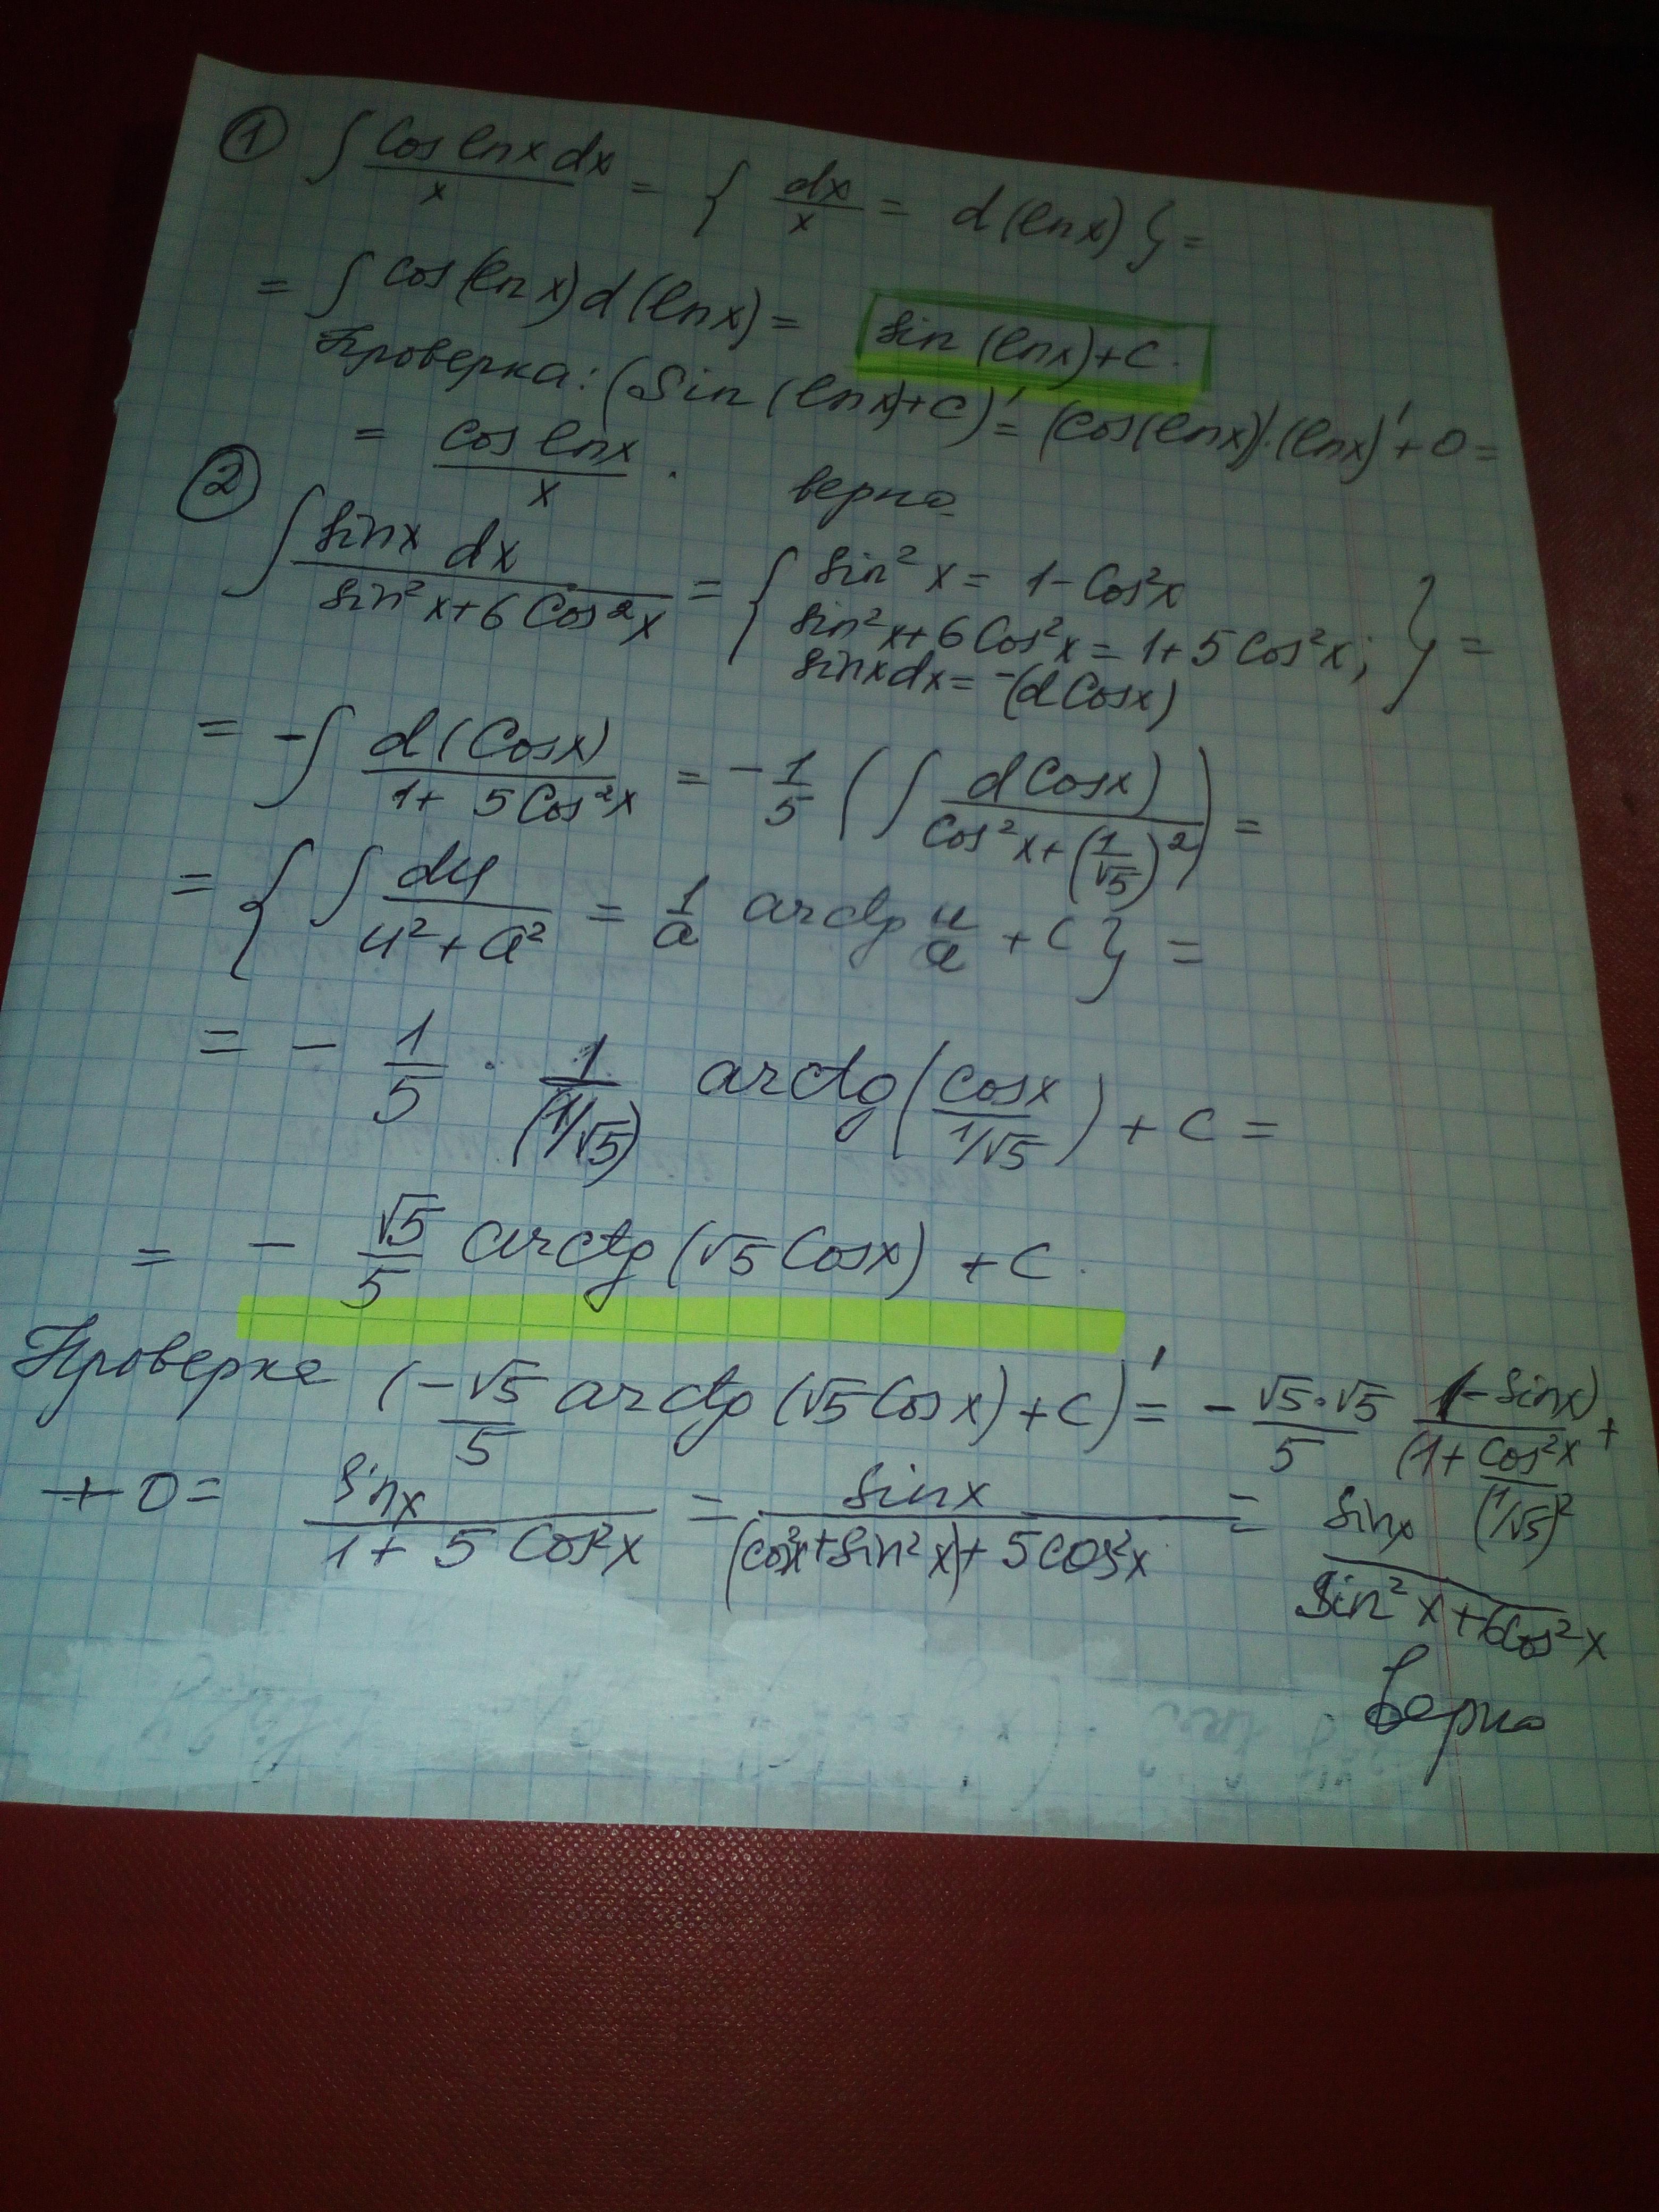 ① ∫ cos lnx dx / x = { dx / x = d (lnx) } =
= ∫ cos (lnx) d (lnx) = sin (lnx) + C.
Проверка: (Sin (lnx) + C)' = (cos (lnx)) · (lnx)' + 0 =
= cos lnx / x . верно
② ∫ sinx dx / sin² x + 6 Cos² x = { sin² x = 1 - Cos² x
sin² x + 6 Cos² x = 1 + 5 Cos² x; } =
sinx dx = -(d Cosx)
= - ∫ d (Cosx) / 1 + 5 Cos² x = - 1/5 ( ∫ d Cosx) / Cos² x + (1/√5)² ) =
= { ∫ du / u² + a² = 1/a arctg u/a + C } =
= - 1/5 · 1/(1/√5) arctg ( Cosx / 1/√5 ) + C =
= - √5/5 arctg (√5 Cosx) + C.
Проверка (- √5/5 arctg (√5 Cosx) + C)' = - √5·√5 / 5 (-Sinx) / (1 + Cos² x / (1/√5)² +
+ 0 = Sinx / 1 + 5 Cos² x = Sinx / (Cos² x + Sin² x) + 5 Cos² x = Sinx / Sin² x + 6 Cos² x
верно